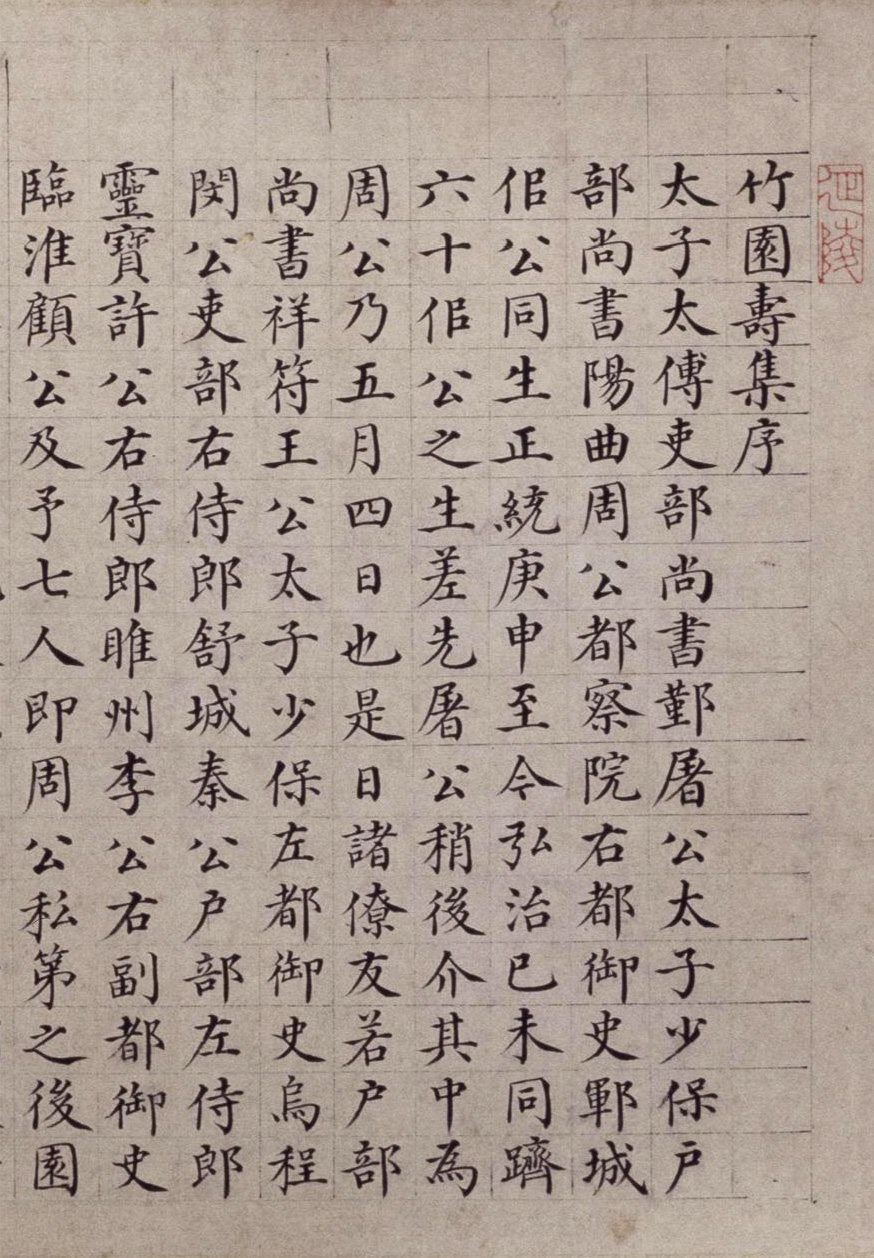 竹園壽集序
太子太傅吏部尚書鄞屠公太子少保戶
部尚書陽曲周公都察院右都御史鄆城
侶公同生正統庚申至今弘治已未同躋
六十侶公之生差先屠公稍後介其中為
周公乃五月四日也是日諸僚友若戶部
尚書祥符王公太子少保左都御史烏程
閔公吏部右侍郎舒城秦公戶部左侍郎
靈寶許公右侍郎睢州李公右副都御史
臨淮顧公及予七人即周公私第之後園